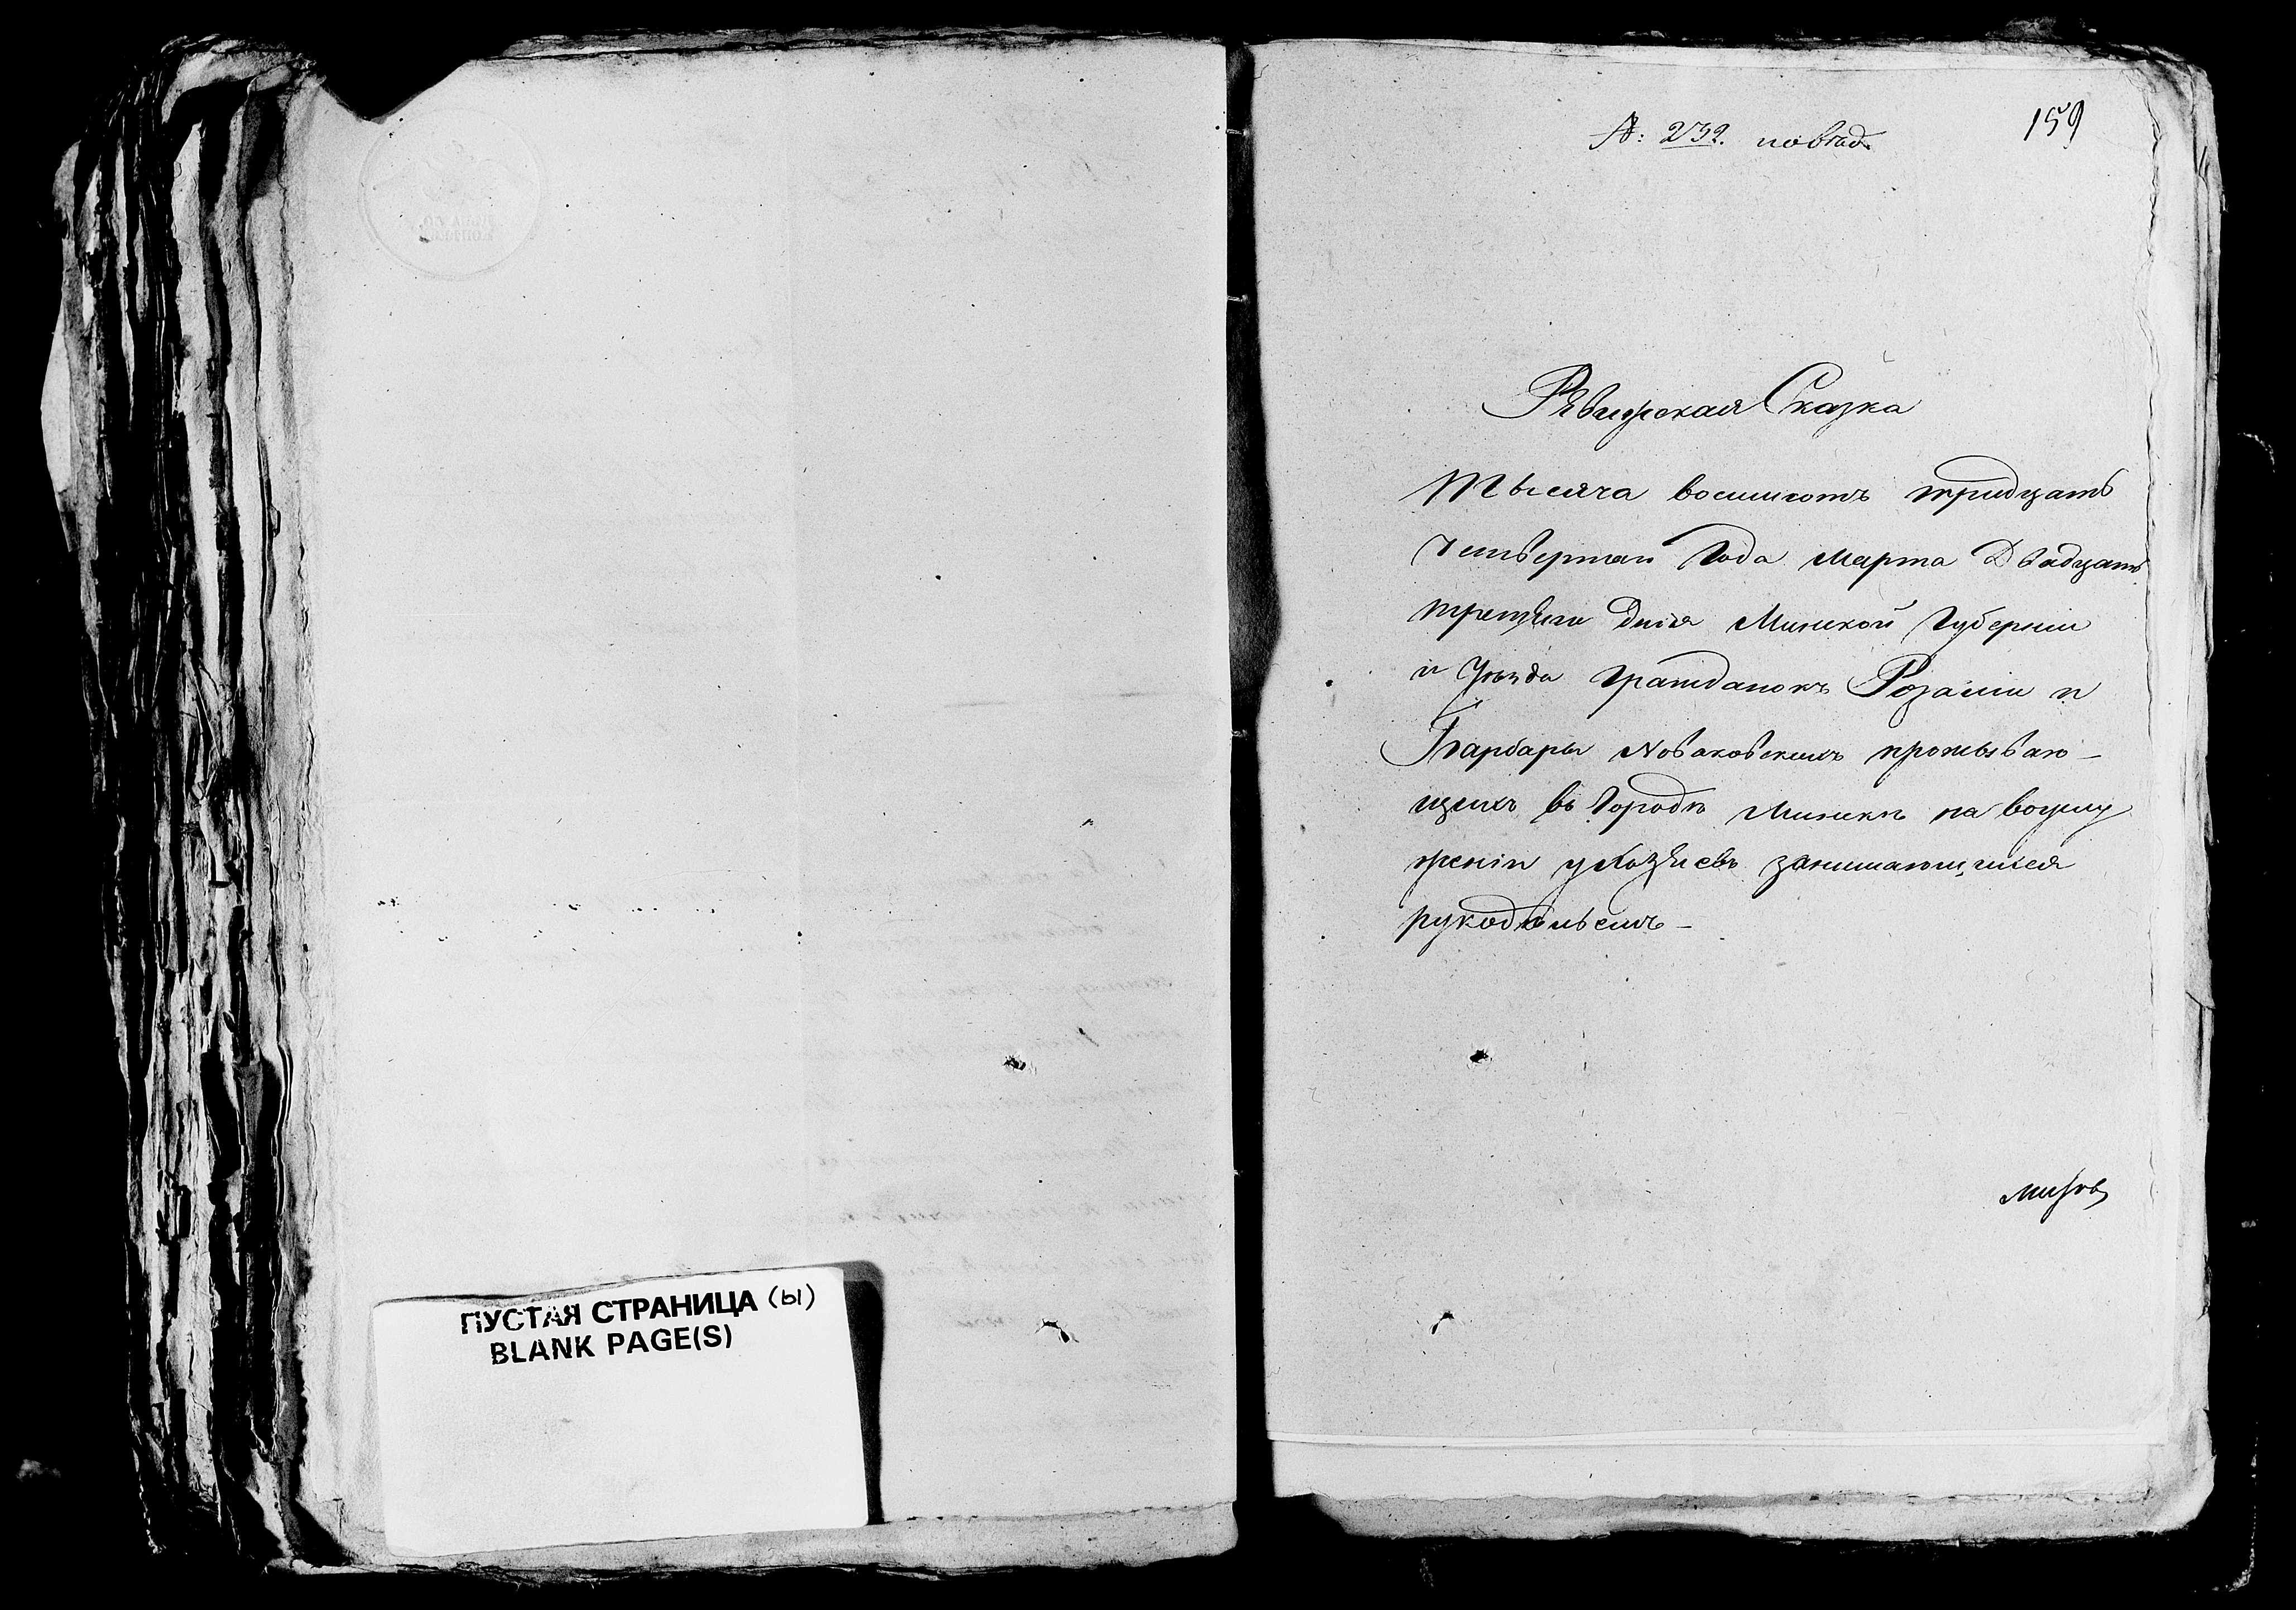 ПУСТАЯ СТРАНИЦА (ы)
BLANK PAGE(S)
159
№: 232.
Ревизская Сказка
Тысяча восимсотъ тридцать
Четвертаго Года Марта Двадцать
третяго Дния Минской Губерніи
и Уѣзда Гражданокъ Розаліи и
Барбары Новаковскихъ проживаю-
щихъ въ Городѣ Минскѣ на
у Хозяевъ занимающихся
рукодѣльемъ -